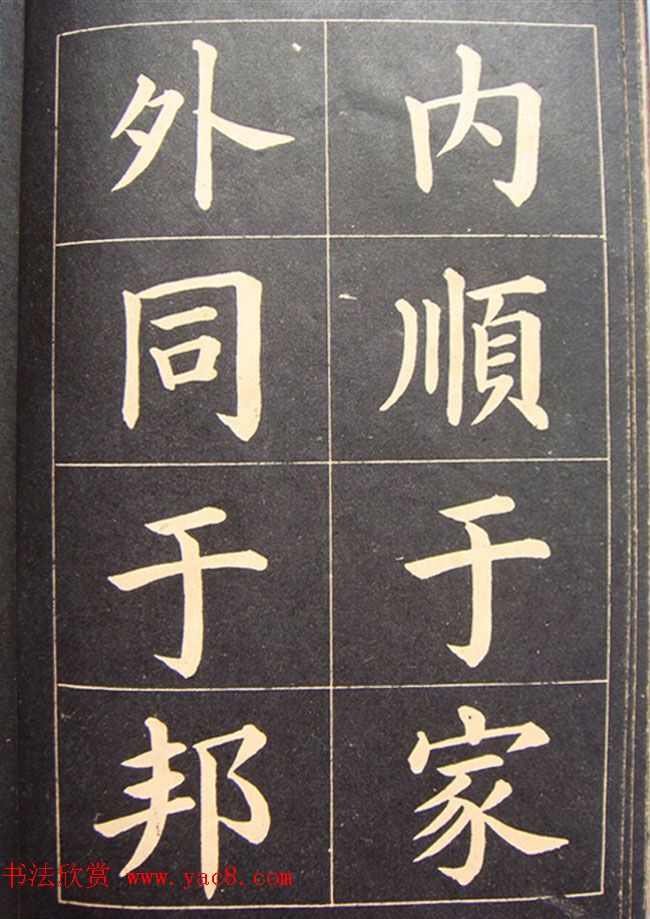 内順于家
外同于邦
书法欣赏 www.yac8.com